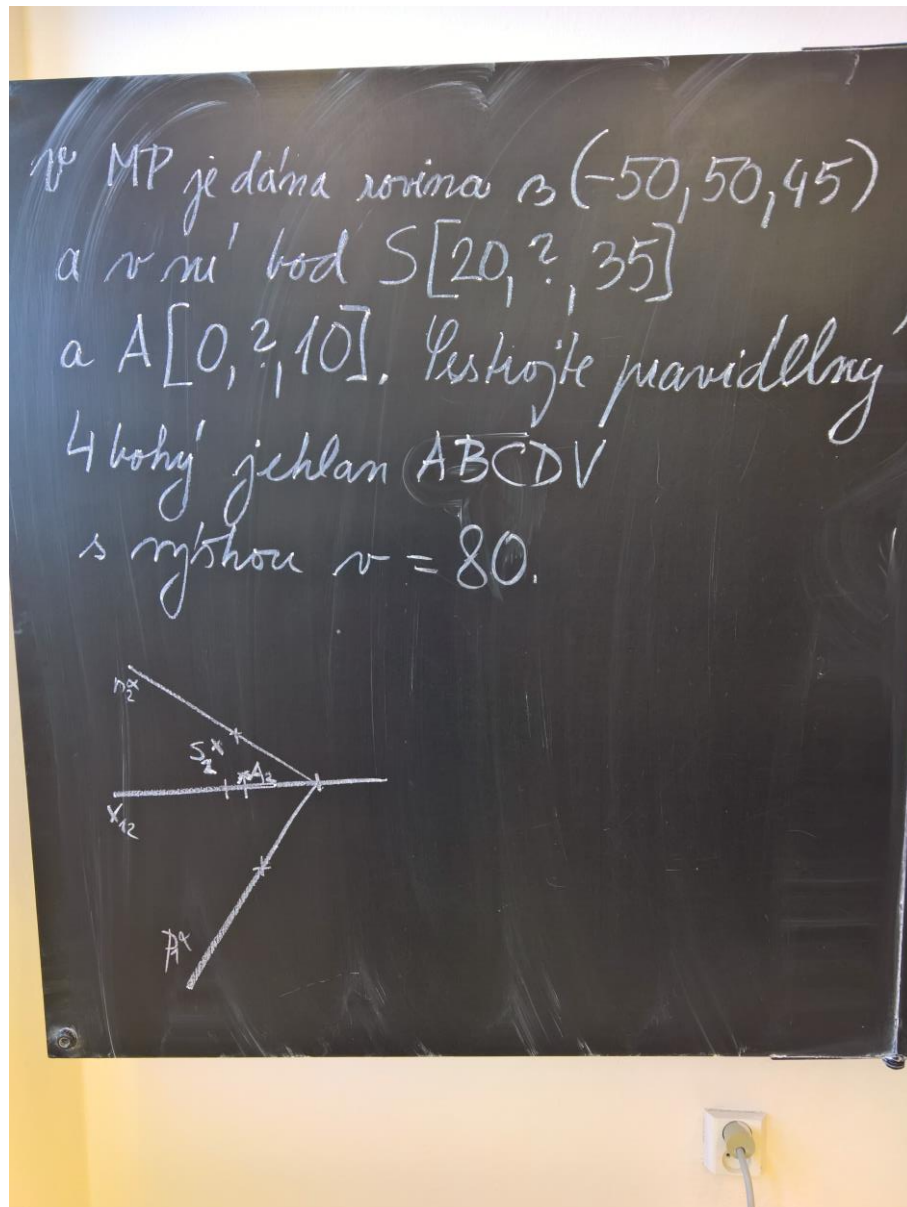 V MP je dána rovina β (-50, 50, 45)
a v ní bod S[20, ?, 35]
a A[0, ?, 10]. Sestrojte pravidelný
4boký jehlan ABCDV
s výškou v = 80.
n₂^α
S₂
A₂
x₁₂
p₁^α